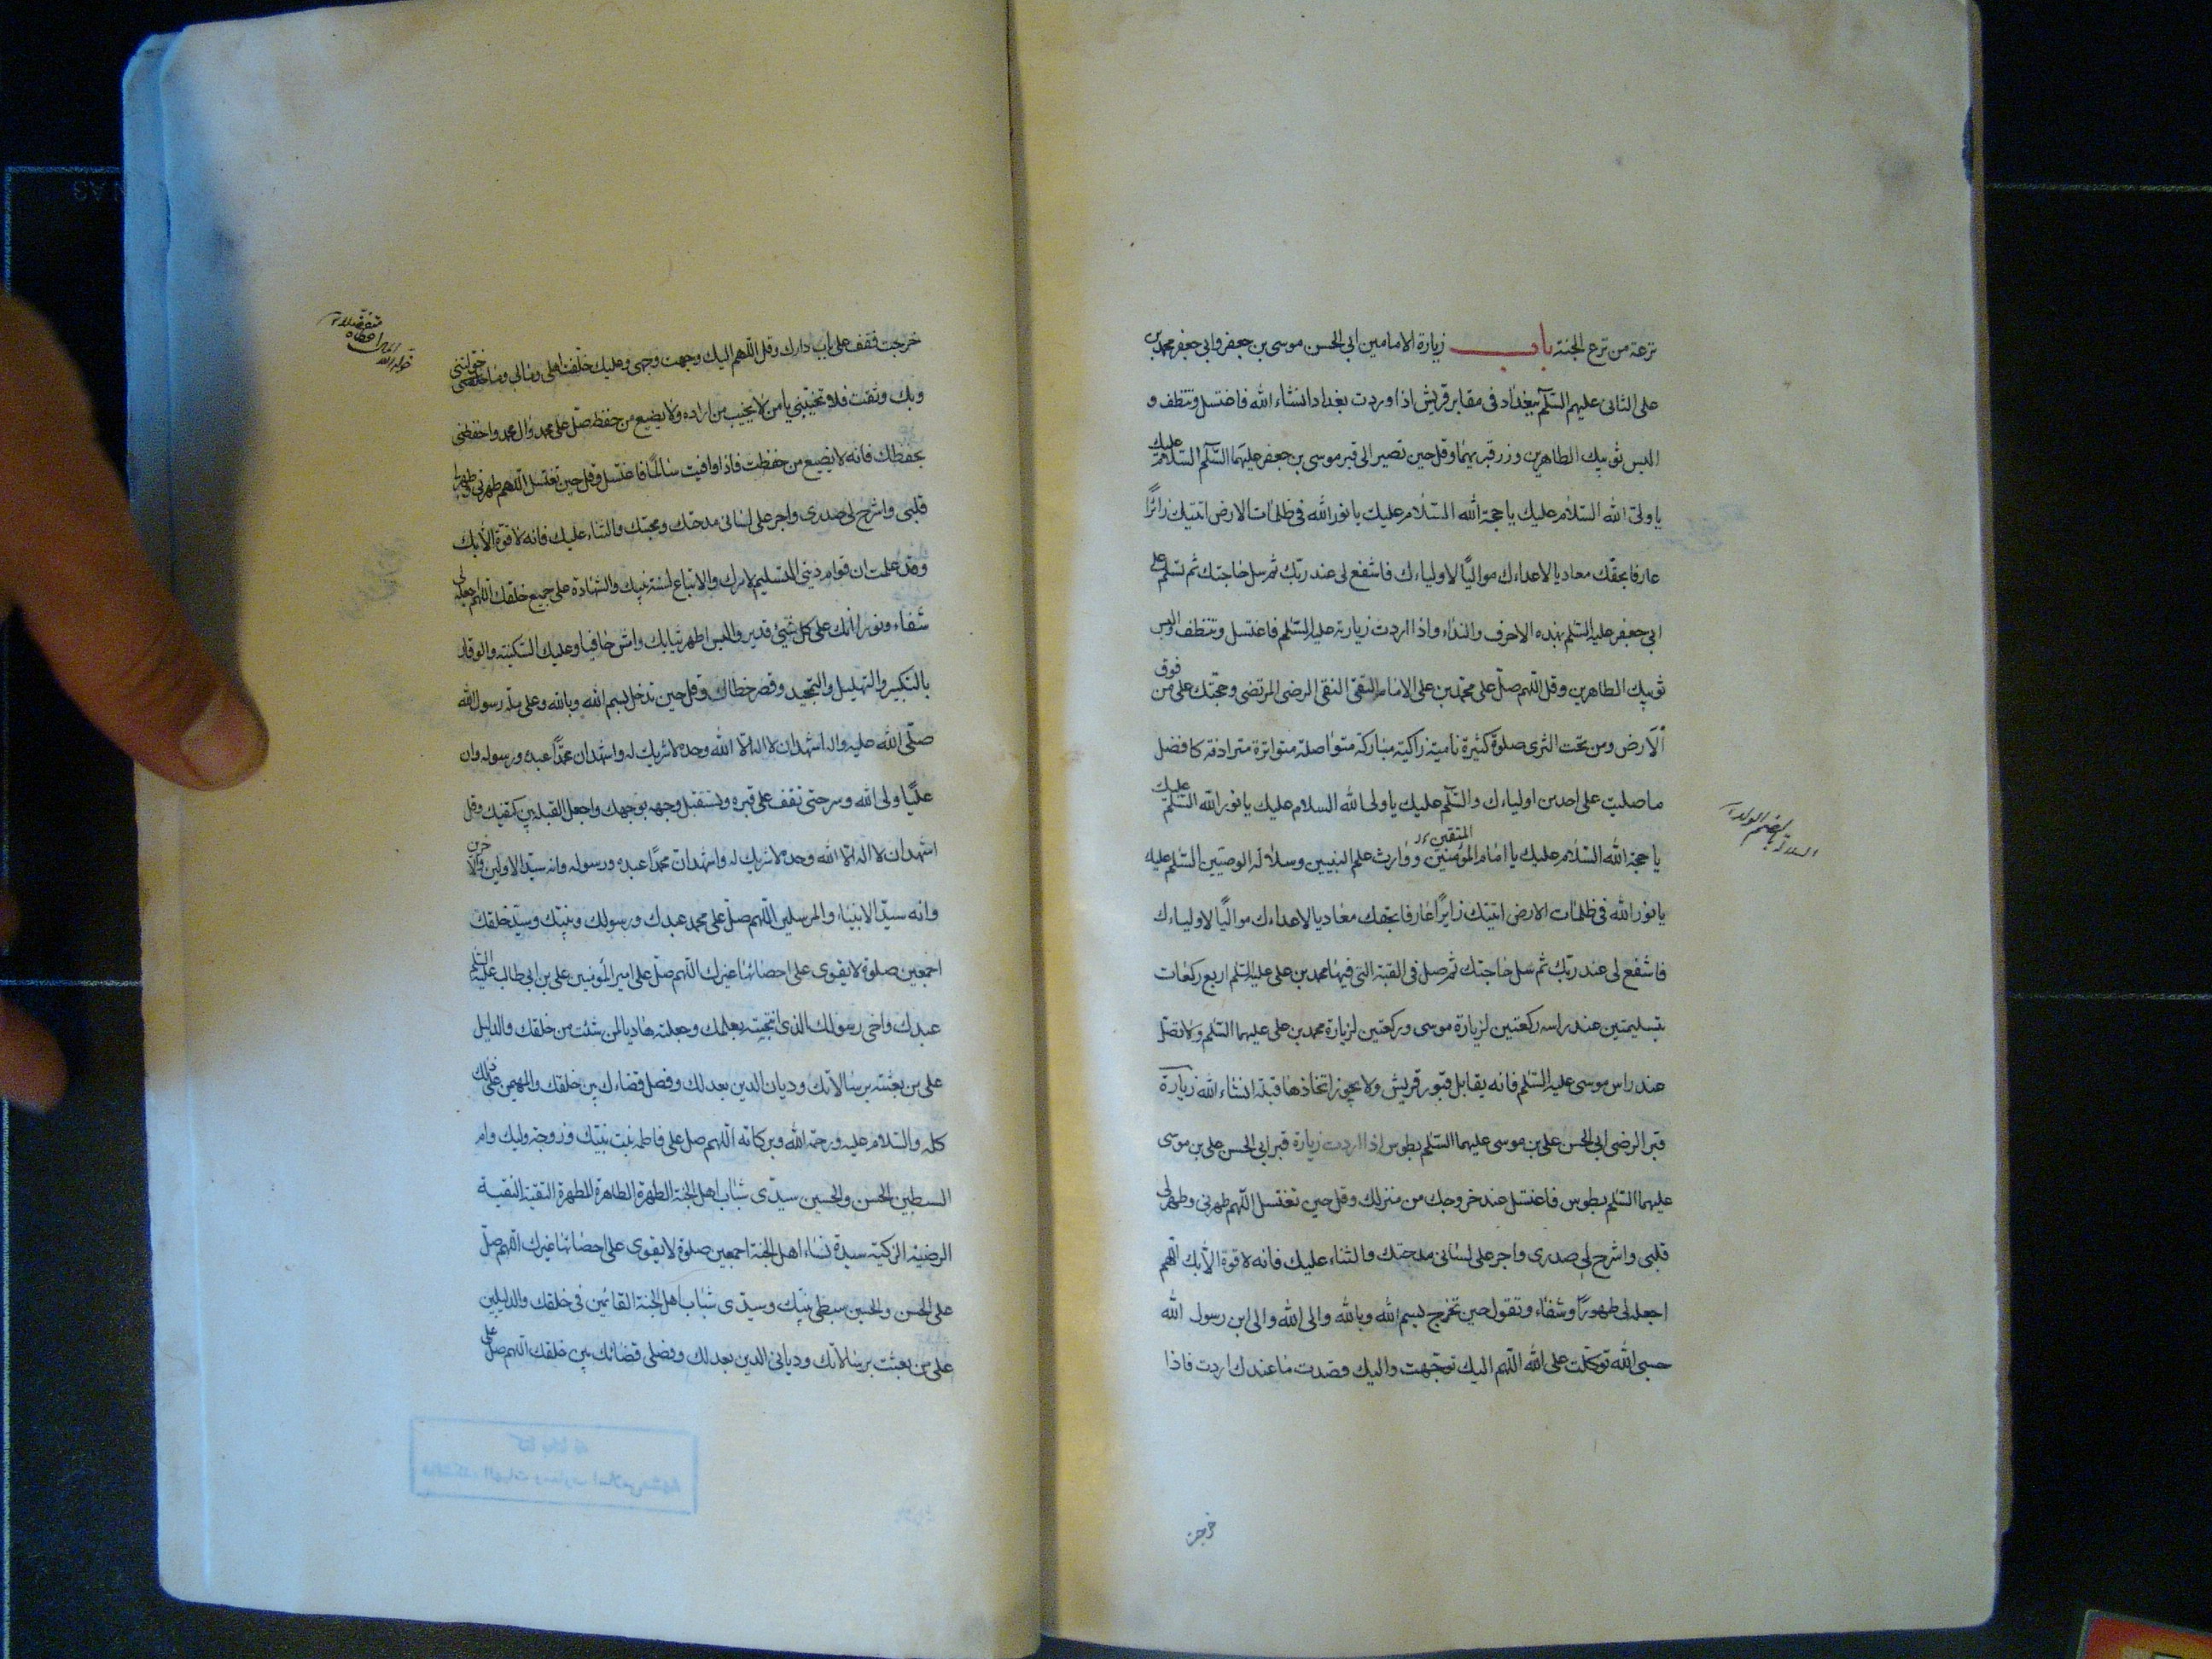 ترعة من ترع الجنة باب زيارة الامامين ابى الحسن موسى بن جعفر وابى جعفر محمد بن
على الثانى عليهم السلم ببغداد فى مقابر قريش اذا وردت بغداد انشاء الله فاغتسل وتنظف و
البس ثوبيك الطاهرين وزر قبريهما وقل حين تصير الى قبر موسى بن جعفر عليهما السلم السلام عليك
يا ولى الله السلام عليك يا حجة الله السلام عليك يا نور الله فى ظلمات الارض اتيتك زائرًا
عارفا بحقك معاديا لاعداءك مواليًا لاولياءك فاشفع لى عند ربك ثم سل حاجتك ثم تسلم على
ابى جعفر عليه السلم بهذه الاحرف والنداء واذا اردت زيارته عليه السلم فاغتسل وتنظف والبس
ثوبيك الطاهرين وقل اللهم صل على محمد بن على الامام التقى النقى الرضى المرتضى وحجتك على من فوق
الارض ومن تحت الثرى صلوة كثيرة نامية زاكية مباركة متواصلة متواترة مترادفة كافضل
ما صليت على احد من اولياءك والسلم عليك يا ولى الله السلام عليك يا نور الله السلم عليك
يا حجة الله السلام عليك يا امام المؤمنين المتقين ووارث علم النبيين وسلالة الوصيين السلم عليك
يا نور الله فى ظلمات الارض اتيتك زايرًا عارفا بحقك معاديا لاعداءك مواليًا لاولياءك
فاشفع لى عند ربك ثم سل حاجتك ثم صل فى القبة التى فيها محمد بن على عليه السلم اربع ركعات
بتسليمتين عند راسه ركعتين لزيارة موسى وركعتين لزيارة محمد بن على عليهما السلم ولا تصل
عند راس موسى عليه السلم فانه يقابل قبور قريش ولا يجوز اتخاذها قبلة انشاء الله زيارة
قبر الرضى ابى الحسن على بن موسى عليهما السلم بطوس اذا اردت زيارة قبر ابى الحسن على بن موسى
عليهما السلم بطوس فاغتسل عند خروجك من منزلك وقل حين تغتسل اللهم طهرنى وطهر لى
قلبى واشرح لى صدرى واجر على لسانى مدحتك والثناء عليك فانه لا قوة الا بك اللهم
اجعله لى طهورًا وشفاء وتقول حين تخرج بسم الله وبالله والى الله والى ابن رسول الله
حسبى الله توكلت على الله اللهم اليك توجهت واليك قصدت ما عندك اردت فاذا
خرجت
خرجت فقف على باب دارك وقل اللهم اليك وجهت وجهى وعليك خلفت اهلى ومالى وما خولتنى
وبك وثقت فلا تخيبنى يا من لا يخيب من اراده ولا يضيع من حفظه صل على محمد وال محمد واحفظنى
بحفظك فانه لا يضيع من حفظت فاذا وافيت سالمًا فاغتسل وقل حين تغتسل اللهم طهرنى وطهر لى
قلبى واشرح لى صدرى واجر على لسانى مدحتك ومحبتك والثناء عليك فانه لا قوة الا بك
وقد علمت ان قوام دينى التسليم لامرك والاتباع لسنة نبيك والشهادة على جميع خلقك اللهم اجعله لى
شفاء ونورا انك على كل شئ قدير والبس اطهر ثيابك وامش حافيا وعليك السكينة والوقار
بالتكبير والتهليل والتمجيد وقصر خطاك وقل حين تدخل بسم الله وبالله وعلى ملة رسول الله
صلى الله عليه واله اشهد ان لا اله الا الله وحده لا شريك له واشهد ان محمدًا عبده ورسوله وان
عليًا ولى الله وسر حتى تقف على قبره وتستقبل وجهه بوجهك واجعل القبلة بين كتفيك وقل
اشهد ان لا اله الا الله وحده لا شريك له واشهد ان محمدًا عبده ورسوله وانه سيد الاولين والاخرين
وانه سيد الانبياء والمرسلين اللهم صل على محمد عبدك ورسولك ونبيك وسيد خلقك
اجمعين صلوة لا يقوى على احصائها غيرك اللهم صل على امير المؤمنين على بن ابى طالب عليه السلم
عبدك واخى رسولك الذى انتجبته بعلمك وجعلته هاديا لمن شئت من خلقك والدليل
على من بعثته برسالاتك وديان الدين بعدلك وفصل قضاءك بين خلقك والمهيمن على ذلك
كله والسلام عليه ورحمة الله وبركاته اللهم صل على فاطمة بنت نبيك وزوجة وليك وام
السبطين الحسن والحسين سيدى شباب اهل الجنة الطهرة الطاهرة المطهرة التقية النقية
الرضية الزكية سيدة نساء اهل الجنة اجمعين صلوة لا يقوى على احصائها غيرك اللهم صل
على الحسن والحسين سبطى نبيك وسيدى شباب اهل الجنة القائمين فى خلقك والدليلين
على من بعثت برسالاتك وديانى الدين بعدلك وفصلى قضائك بين خلقك اللهم صل على